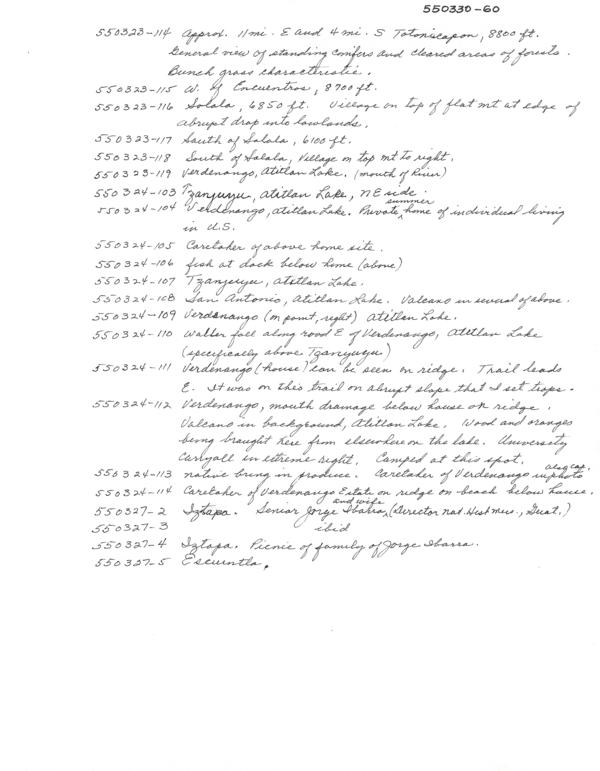 550330-60
550323-114 Approx. 11 mi. E and 4 mi. S Totonicapan, 8800 ft.
General view of standing conifers and cleared areas of forests.
Bunch grass characteristic.
550323-115 W. of Encuentros, 8700 ft.
550323-116 Solala, 6850 ft. Village on top of flat mt at edge of
abrupt drop into lowlands.
550323-117 South of Solala, 6100 ft.
550323-118 South of Salala, Village on top mt to right.
550323-119 Verdenango, Atitlan Lake. (mouth of River)
550324-103 Tzanjuyu, Atitlan Lake, NE side.
550324-104 Verdenango, Atitlan Lake. Private summer home of individual living
in U.S.
550324-105 Caretaker of above home site.
550324-106 fish at dock below home (above)
550324-107 Tzanjuyu, Atitlan Lake.
550324-108 San Antonio, Atitlan Lake. Valcano in several of above.
550324-109 Verdanango (on point, right) Atitlan Lake.
550324-110 Water fall along road E of Verdenango, Atitlan Lake
(specifically above Tzanyuyu)
550324-111 Verdenango (house) can be seen on ridge. Trail leads
E. It was on this trail on abrupt slope that I set traps.
550324-112 Verdenango, mouth drainage below house on ridge.
Valcano in background, Atitlan Lake. Wood and oranges
being braught here from elsewhere on the lake. University
Carryall in extreme right. Camped at this spot.
550324-113 native bring in produce. Caretaker of Verdenango in photo
550324-114 Caretaker of Verdenango Estate on ridge on beach below house.
550327-2 Iztapa. Senior Jorge Ibarra and wife (Director Nat. Hist Mus., Guat.)
550327-3 ibid
550327-4 Iztapa. Picnic of family of Jorge Ibarra.
550327-5 Escuintla.